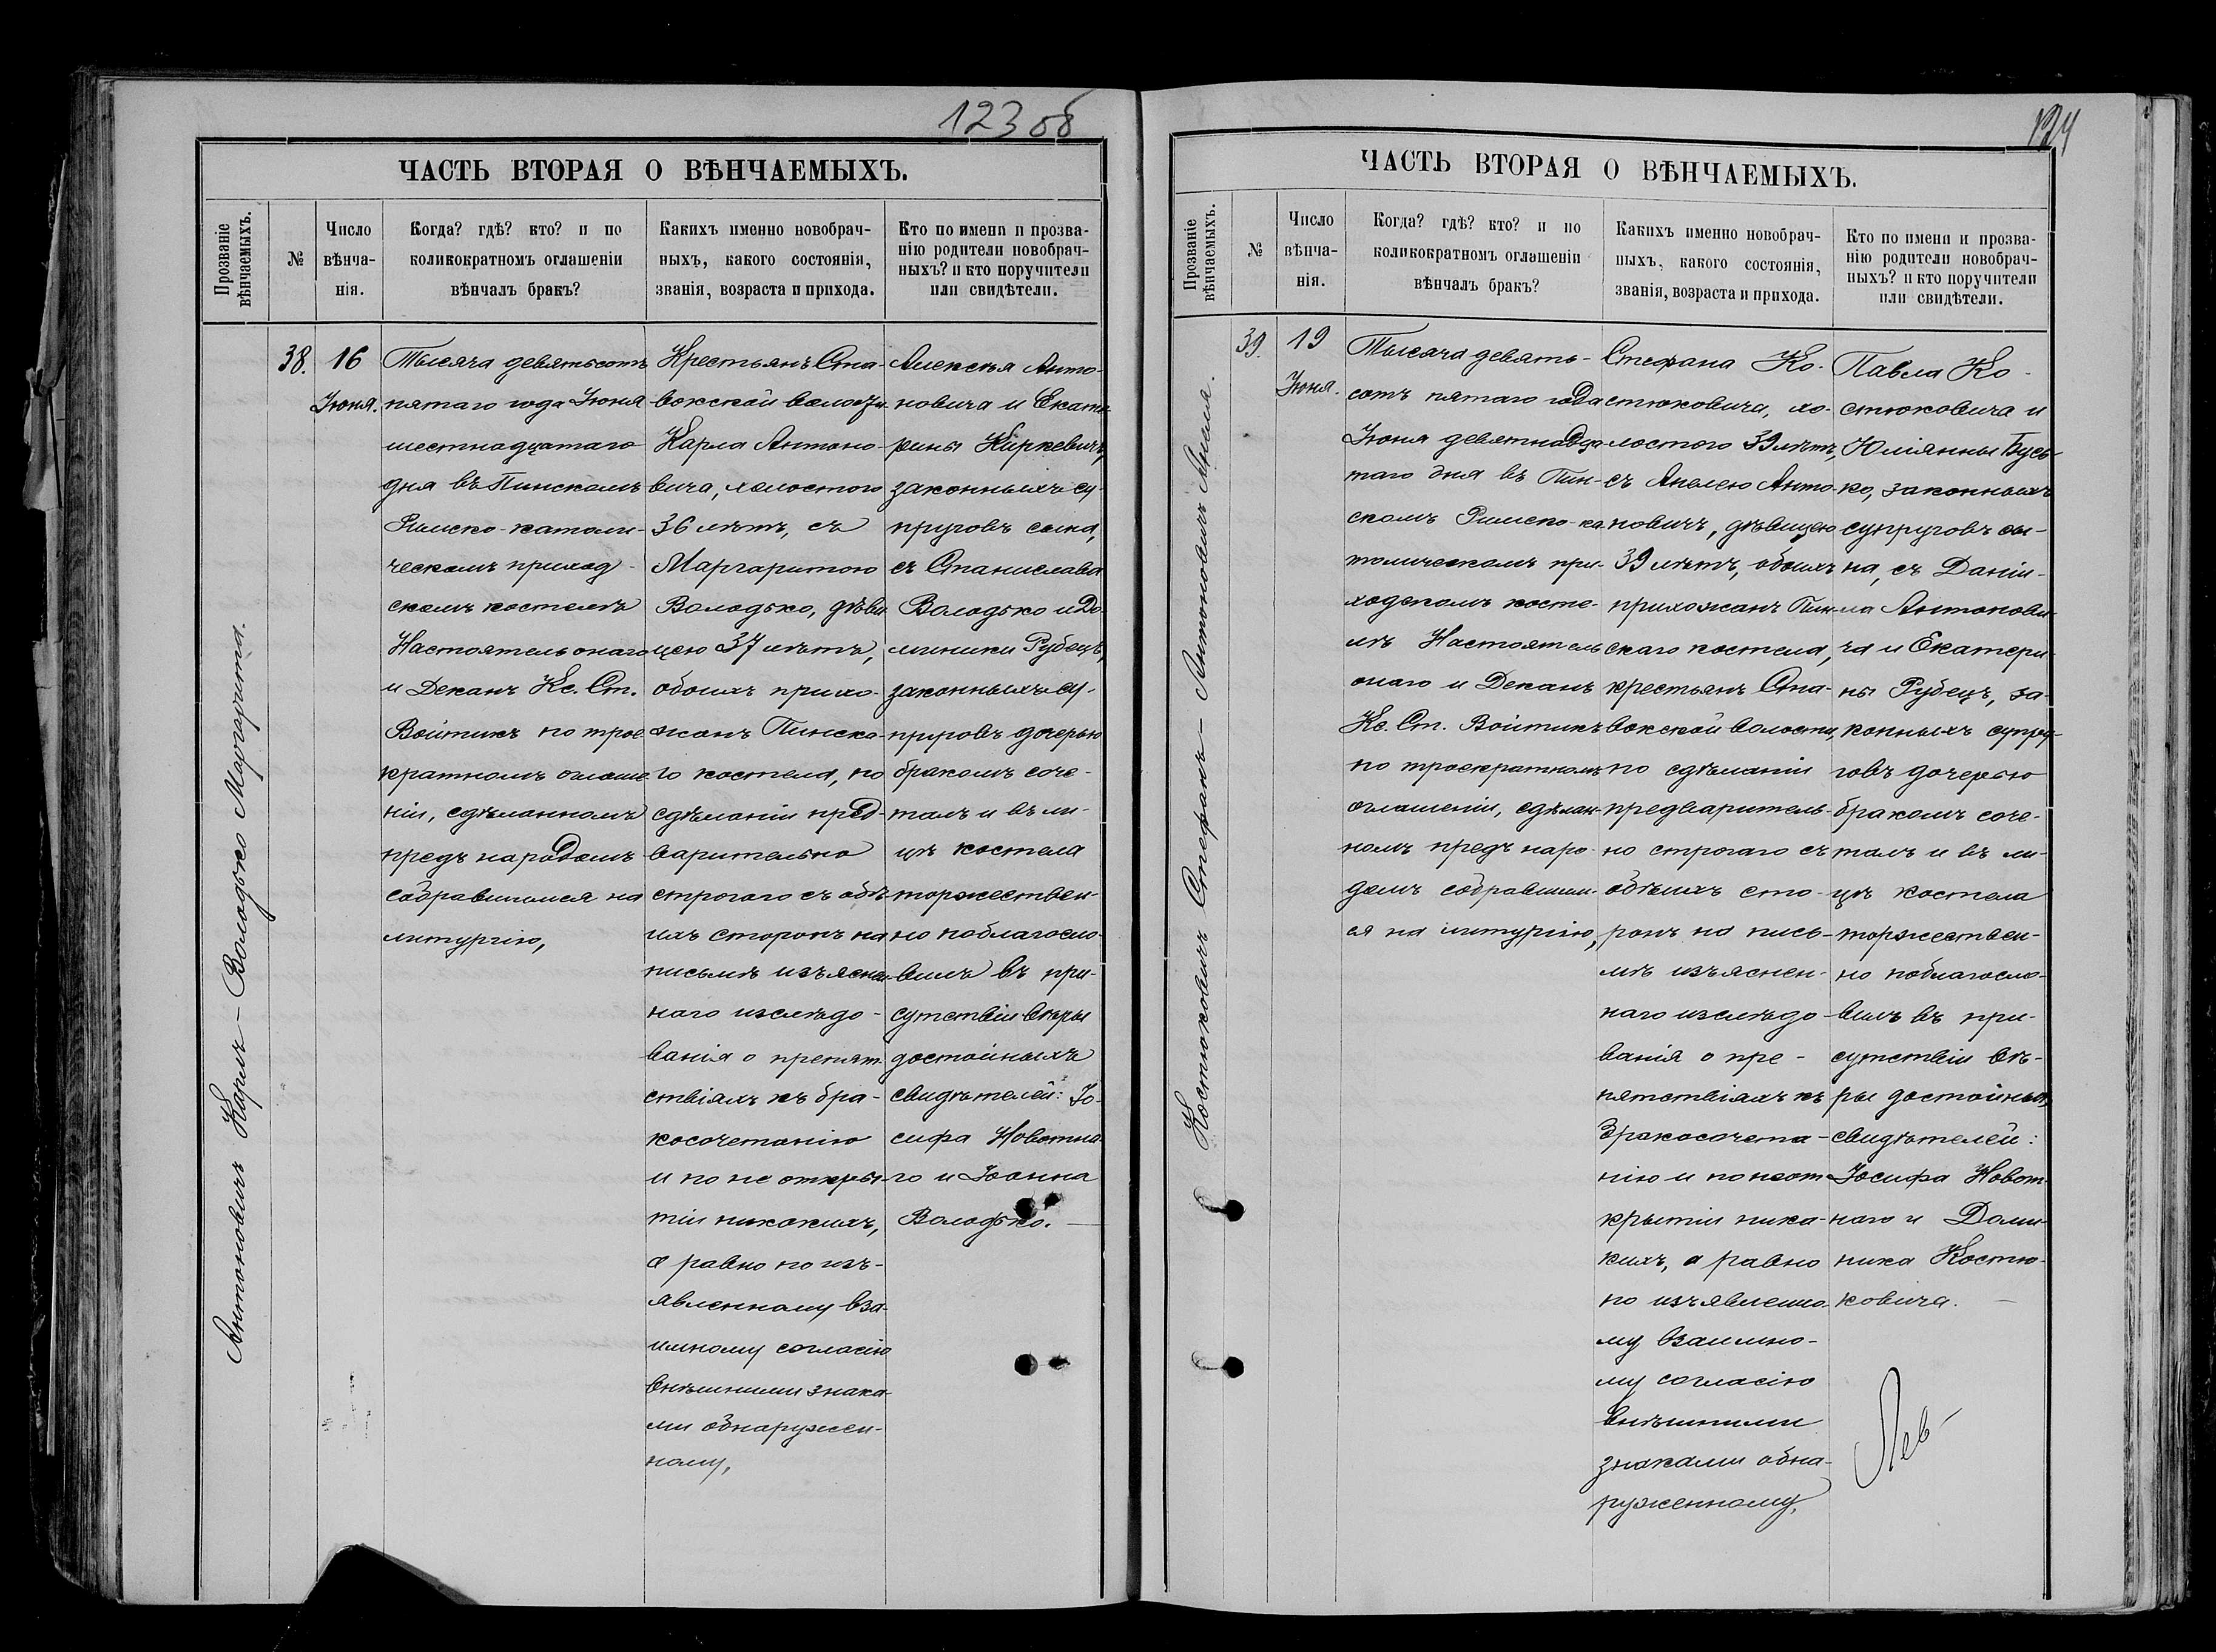 123 об
ЧАСТЬ ВТОРАЯ О ВѢНЧАЕМЫХЪ.
Прозваніе
вѣнчаемыхъ.
№
Число
вѣнча-
нія.
Когда? гдѣ? кто? и по
коликократномъ оглашеніи
вѣнчалъ бракъ?
Какихъ именно новобрач-
ныхъ, какого состоянія,
званія, возраста и прихода.
Кто по имени и прозва-
нію родители новобрач-
ныхъ? и кто поручители
или свидѣтели.
Антоновичъ Карлъ – Володько Маргарита.
38.
16
Іюня.
Тысяча девятьсотъ
пятаго года Іюня
шестнадцатаго
дня въ Пинскомъ
Римско-католи-
ческомъ приход-
скомъ костелѣ
Настоятель онаго
и Деканъ Кс. Ст.
Войтикъ по трое-
кратномъ оглаше-
ніи, сдѣланномъ
предъ народомъ
собравшимся на
литургію,
Крестьянъ Ста-
вокской волости
Карла Антоно-
вича, холостого
36 лѣтъ, съ
Маргаритою
Володько, дѣви-
цею 37 лѣтъ,
обоихъ прихо-
жанъ Пинска-
го костела, по
сдѣланіи пред-
варительно
строгаго съ обѣ-
ихъ сторонъ на
письмѣ изъяснен-
наго изслѣдо-
ванія о препят-
ствіяхъ къ бра-
косочетанію
и по не откры-
тіи никакихъ,
а равно по изъ-
явленному вза-
имному согласію
внѣшними знака-
ми обнаружен-
ному,
Алексѣя Анто-
новича и Екате-
рины Киркевичъ,
законныхъ су-
пруговъ сына,
съ Станислава
Володько и До-
миники Рубецъ,
законныхъ су-
пруговъ дочерью
бракомъ соче-
талъ и въ ли-
цѣ костела
торжествен-
но поблагосло-
вилъ въ при-
сутствіи вѣры
достойныхъ
свидѣтелей: Іо-
сифа Новотна-
го и Іоанна
Володько. –
124
ЧАСТЬ ВТОРАЯ О ВѢНЧАЕМЫХЪ.
Прозваніе
вѣнчаемыхъ.
№
Число
вѣнча-
нія.
Когда? гдѣ? кто? и по
коликократномъ оглашеніи
вѣнчалъ бракъ?
Какихъ именно новобрач-
ныхъ, какого состоянія,
званія, возраста и прихода.
Кто по имени и прозва-
нію родители новобрач-
ныхъ? и кто поручители
или свидѣтели.
Костюковичъ Стефанъ – Антоновичъ Анеля.
39.
19
Іюня.
Тысяча девять-
сотъ пятаго года
Іюня девятнадца-
таго дня въ Пин-
скомъ Римско-ка-
толическомъ при-
ходскомъ косте-
лѣ Настоятель
онаго и Деканъ
Кс. Ст. Войтикъ
по троекратномъ
оглашеніи, сдѣлан-
номъ предъ наро-
домъ собравшим-
ся на литургію,
Стефана Ко-
стюковича, хо-
лостого 39 лѣтъ,
съ Анелею Анто-
новичъ, дѣвицею
39 лѣтъ, обоихъ
прихожанъ Пин-
скаго костела,
крестьянъ Ста-
вокской волости,
по сдѣланіи
предваритель-
но строгаго съ
обѣихъ сто-
ронъ на пись-
мѣ изъяснен-
наго изслѣдо-
ванія о пре-
пятствіяхъ къ
бракосочета-
нію и по неот-
крытіи ника-
кихъ, а равно
по изъявленно-
му взаимно-
му согласію
внѣшними
знаками обна-
руженному,
Павла Ко-
стюковича и
Юліянны Бусь-
ко, законныхъ
супруговъ сы-
на, съ Даніи-
ла Антонови-
ча и Екатери-
ны Рубецъ, за-
конныхъ супру-
говъ дочерью
бракомъ соче-
талъ и въ ли-
цѣ костела
торжествен-
но поблагосло-
вилъ въ при-
сутствіи вѣ-
ры достойныхъ
свидѣтелей:
Іосифа Новот-
наго и Доми-
ника Костю-
ковича. –